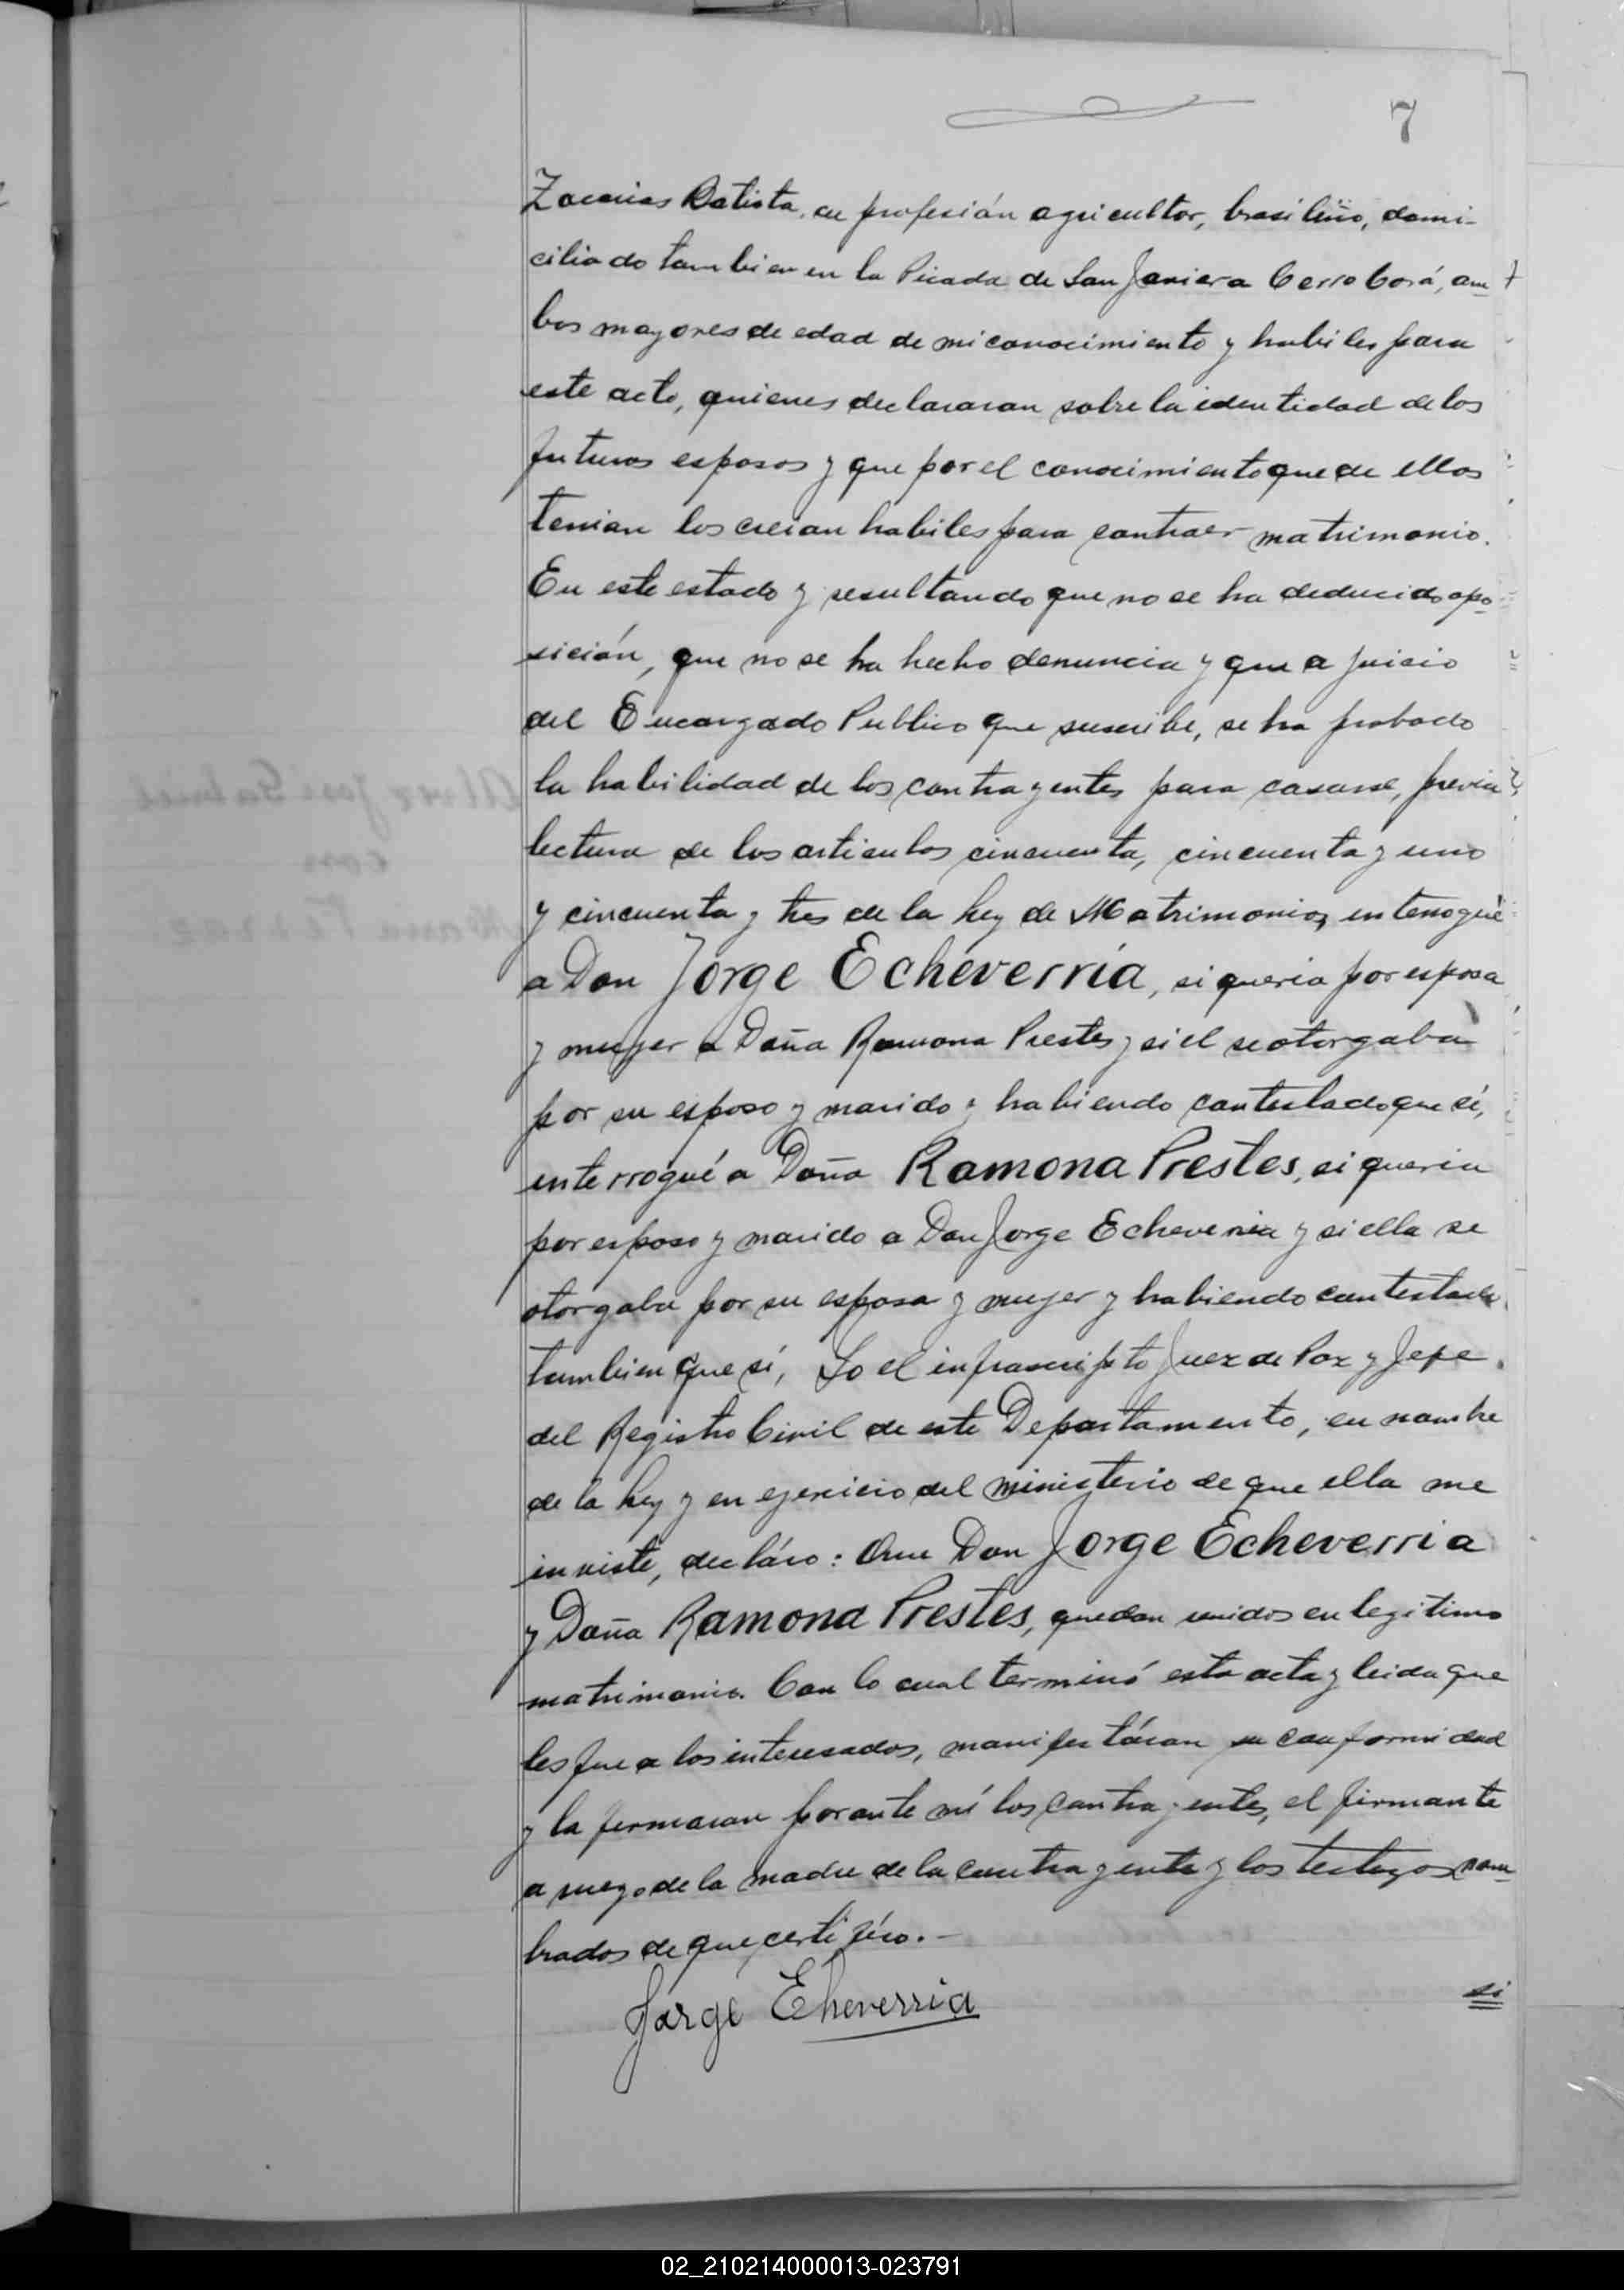 7
Zacarias Batista, de profesión agricultor, brasilero, domi-
ciliado tambien en la Picada de San Javier a Cerro Corá, am-
bos mayores de edad de mi conocimiento y habiles para
este acto, quienes declararan sobre la identidad de los
futuros esposos y que por el conocimiento que de ellos
tenian los creian habiles para contraer matrimonio.
En este estado y resultando que no se ha deducido opo-
sición, que no se ha hecho denuncia y que a juicio
del Encargado Publico que suscribe, se ha probado
la habilidad de los contrayentes para casarse, previa
lectura de los articulos cincuenta, cincuenta y uno
y cincuenta y tres de la Ley de Matrimonio, interrogué
a Don Jorge Echéverría, si queria por esposa
y mujer a Doña Ramona Prestes y si el se otorgaba
por su esposo y marido y habiendo contestado que sí,
interrogué a Doña Ramona Prestes, si queria
por esposo y marido a Don Jorge Echeverria y si ella se
otorgaba por su esposa y mujer y habiendo contestado
tambien que sí, Yo el infrascripto Juez de Paz y Jefe
del Registro Civil de este Departamento, en nombre
de la Ley y en ejercicio del ministerio de que ella me
inviste, decláro: Que Don Jorge Echeverria
y Doña Ramona Prestes, quedan unidos en legitimo
matrimonio. Con lo cual terminó esta acta y leida que
les fue a los interesados, manifestáron su conformidad
y la firmaran por ante mí los contrayentes, el firmante
a ruego de la madre de la contrayente y los testigos nom-
brados de que certifíco.-
Jorge Eheverria
si
02_210214000013-023791